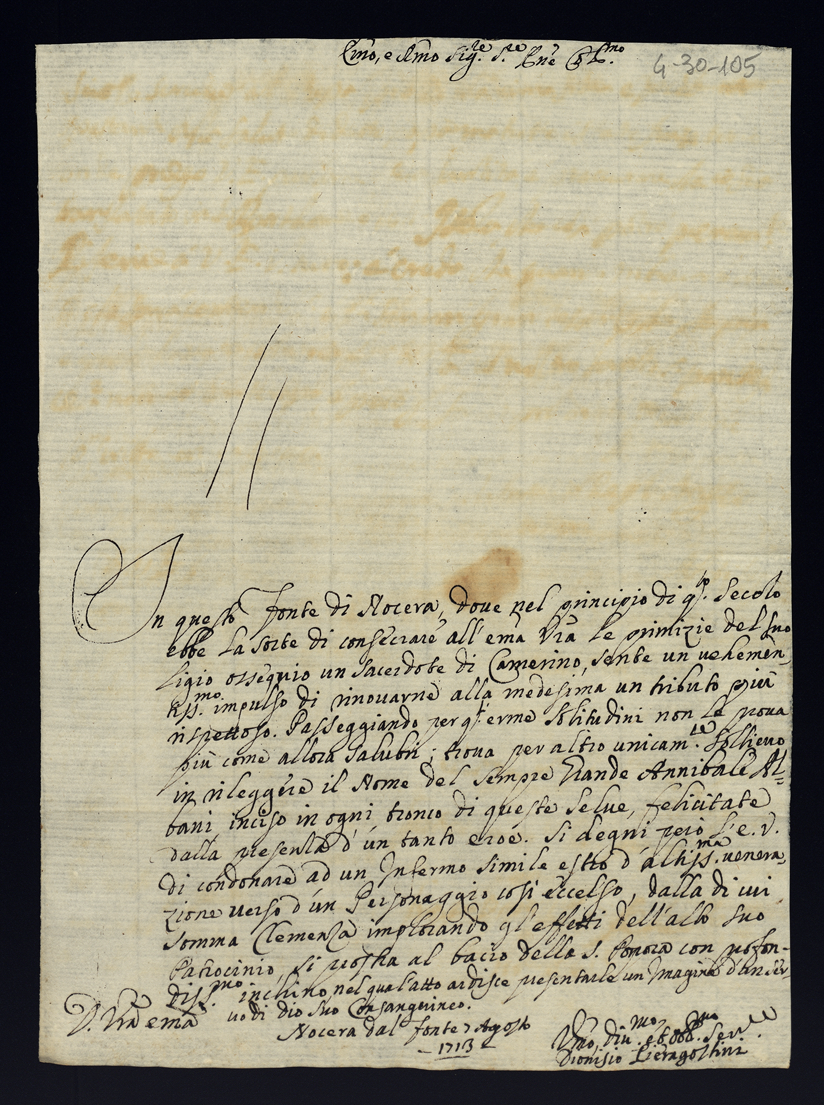 Em̃o, e Rmo Sig.re S.re Pñe C̃olmo
4-30-105
In questo fonte di Nocera, doue nel principio di q.to Secolo
ebbe la sorte di consecrare all'em̃a Vr̃a le primizie del suo
ligio ossequio un Sacerdote di Camerino, sente un uehemen-
tiss.mo impulso di rinouarne alla medesima un tributo più
rispettoso. Passeggiando per q.ste erme solitudini non le proua
più come allora salubri; troua per altro unicam.te sollieuo
in rileggere il Nome del sempre Grande Annibale Al=
bani inciso in ogni tronco di queste selue, felicitate
dalla presenza d'un tanto eroe. Si degni però l'e. v.
di condonare ad un Infermo simile estro d'altiss.ma uenera-
zione uerso d'un Personaggio così eccelso, dalla di cui
somma Clemenza implorando gl'effetti dell'alto suo
Patrocinio, si prostra al bacio della S. Porpora con profon-
diss.mo inchino, nel qual'atto ardisce presentarle un Imagine d'un Ser-
uo di Dio suo Consanguineo.
D. Vr̃a em̃a
Nocera dal fonte 7 Agosto
- 1713 -
Vmo, diu.mo, et obb.mo Seru.e
Dionisio Pieragostini